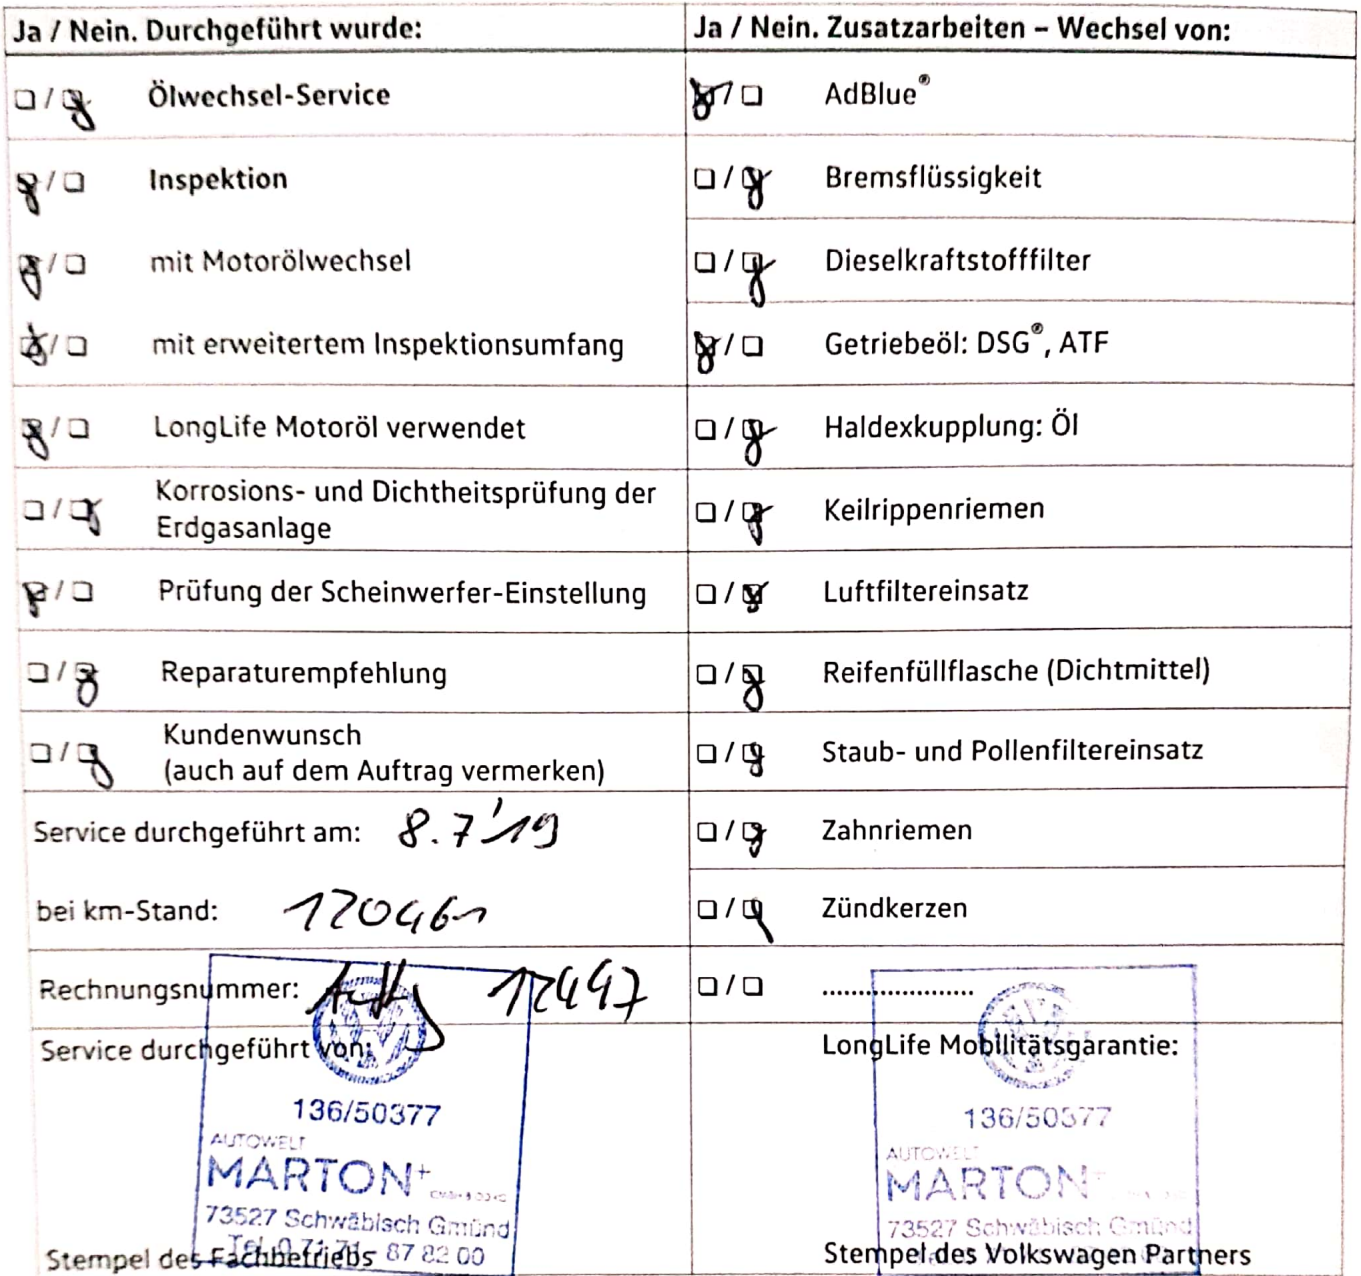 Ja / Nein. Durchgeführt wurde:
Ölwechsel-Service
Inspektion
mit Motorölwechsel
mit erweitertem Inspektionsumfang
LongLife Motoröl verwendet
Korrosions- und Dichtheitsprüfung der
Erdgasanlage
Prüfung der Scheinwerfer-Einstellung
Reparaturempfehlung
Kundenwunsch
(auch auf dem Auftrag vermerken)
Service durchgeführt am: 8.7'19
bei km-Stand: 120461
Rechnungsnummer: 12447
Service durchgeführt von:
136/50377
AUTOWELT
MARTON+
73527 Schwäbisch Gmünd
Tel. 0 71 71 87 82 00
Stempel des Fachbetriebs
Ja / Nein. Zusatzarbeiten – Wechsel von:
AdBlue®
Bremsflüssigkeit
Dieselkraftstofffilter
Getriebeöl: DSG®, ATF
Haldexkupplung: Öl
Keilrippenriemen
Luftfiltereinsatz
Reifenfüllflasche (Dichtmittel)
Staub- und Pollenfiltereinsatz
Zahnriemen
Zündkerzen
.....................
LongLife Mobilitätsgarantie:
136/50377
AUTOWELT
MARTON+
73527 Schwäbisch Gmünd
Stempel des Volkswagen Partners